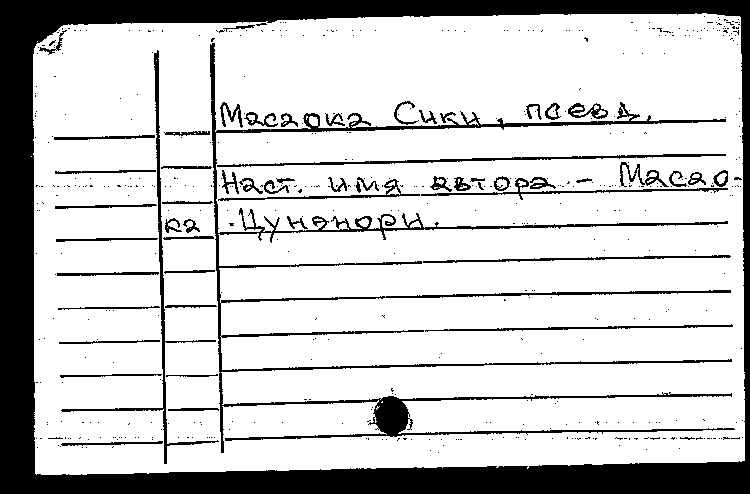 Масаока Сики, псевд.
Наст. имя автора - Масао-
ка Цунэнори.